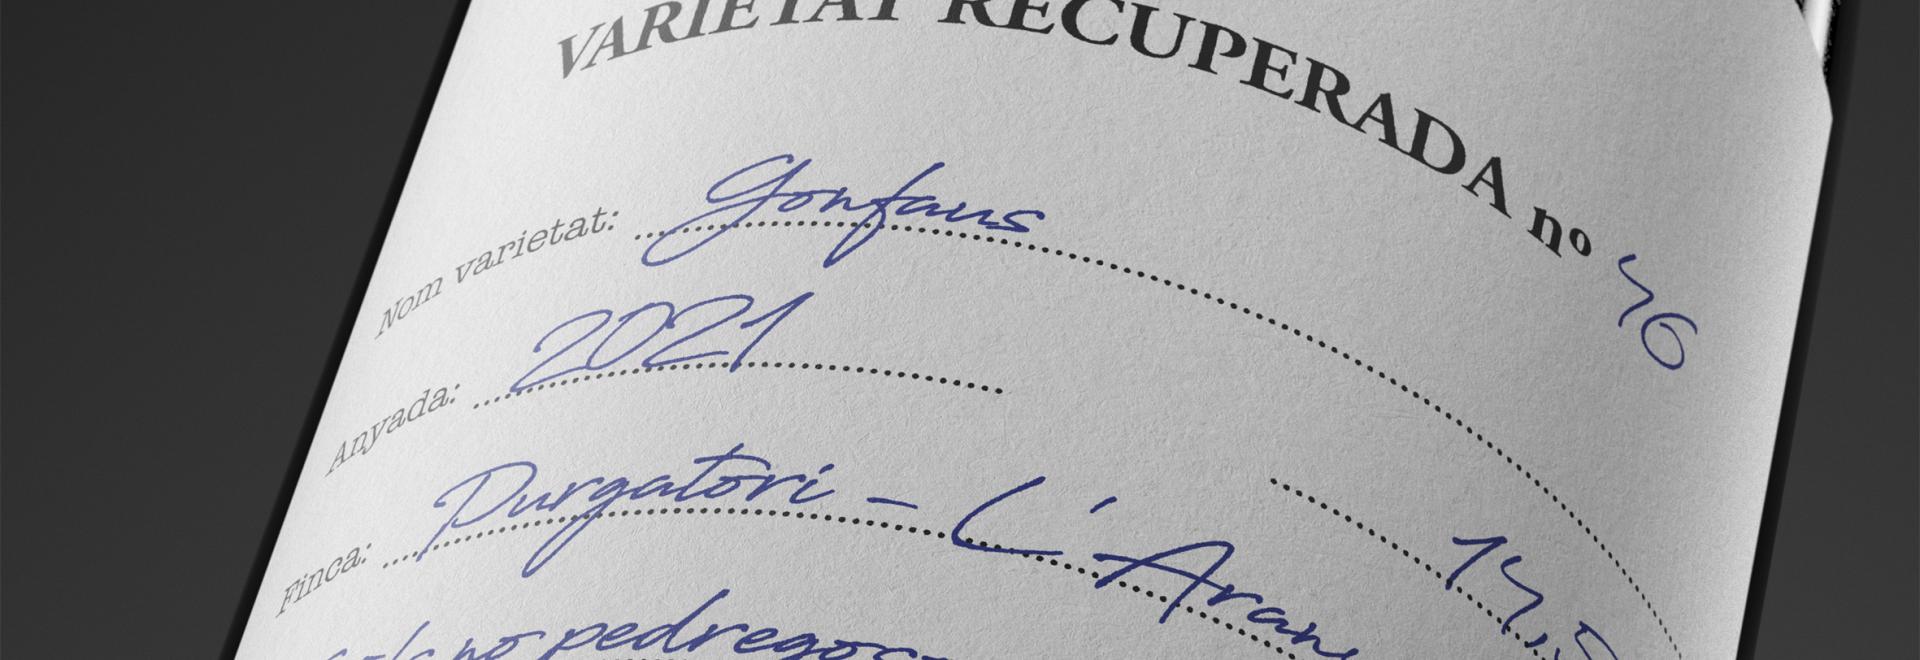 VARIETAT RECUPERADA nº 46
Nom varietat: Gonfaus
Anyada: 2021
Finca: Purgatori - L'Aran
14,5
no pedregos